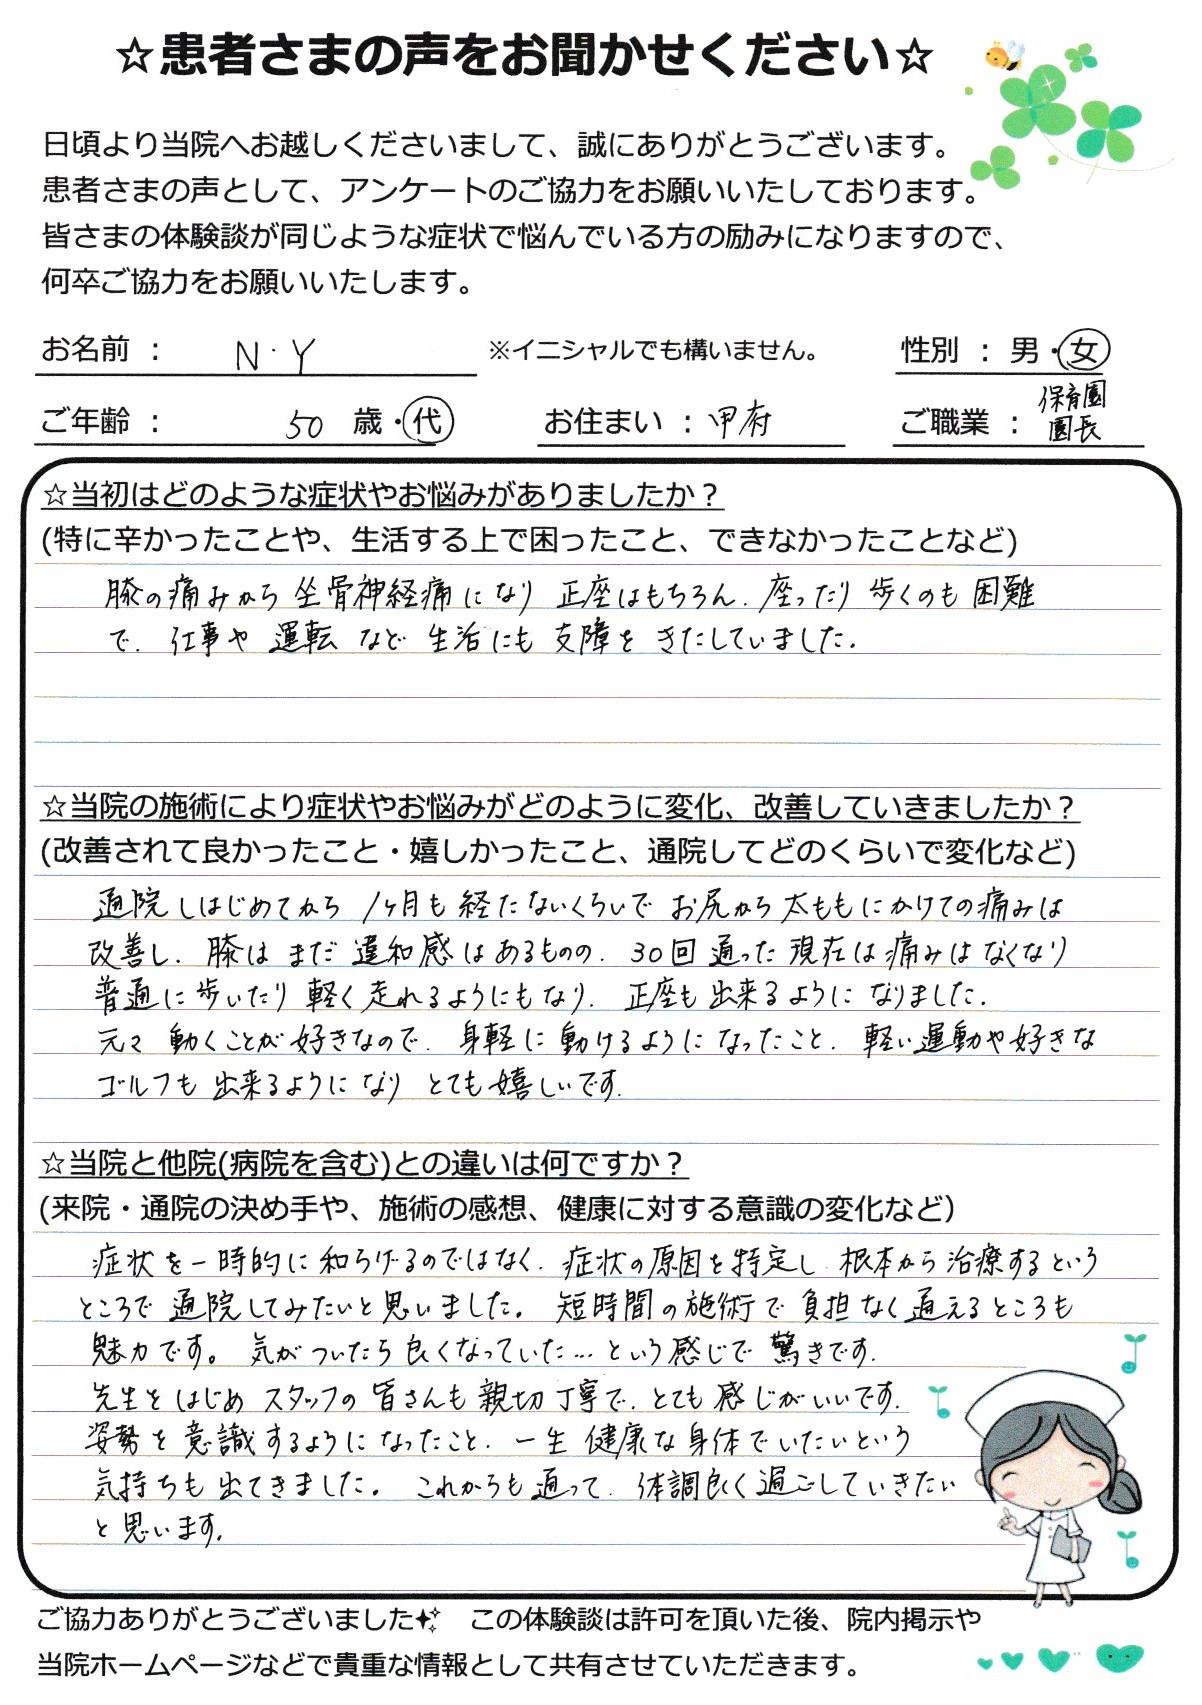 ☆患者さまの声をお聞かせください☆
日頃より当院へお越しくださいまして、誠にありがとうございます。
患者さまの声として、アンケートのご協力をお願いいたしております。
皆さまの体験談が同じような症状で悩んでいる方の励みになりますので、
何卒ご協力をお願いいたします。
お名前 : N・Y ※イニシャルでも構いません。 性別 : 男・女
ご年齢 : 50 歳・代 お住まい : 甲府 ご職業 : 保育園
園長
☆当初はどのような症状やお悩みがありましたか？
(特に辛かったことや、生活する上で困ったこと、できなかったことなど)
膝の痛みから坐骨神経痛になり 正座はもちろん、座ったり歩くのも困難
で、仕事や運転など生活にも支障をきたしていました。
☆当院の施術により症状やお悩みがどのように変化、改善していきましたか？
(改善されて良かったこと・嬉しかったこと、通院してどのくらいで変化など)
通院しはじめてから 1ヶ月も経たないくらいでお尻から太ももにかけての痛みは
改善し、膝はまだ違和感はあるものの、30回通った現在は痛みはなくなり
普通に歩いたり軽く走れるようにもなり、正座も出来るようになりました。
元々動くことが好きなので、身軽に動けるようになったこと、軽い運動や好きな
ゴルフも出来るようになり とても嬉しいです。
☆当院と他院(病院を含む)との違いは何ですか？
(来院・通院の決め手や、施術の感想、健康に対する意識の変化など)
症状を一時的に和らげるのではなく、症状の原因を特定し、根本から治療するという
ところで通院してみたいと思いました。短時間の施術で負担なく通えるところも
魅力です。気がついたら良くなっていた…という感じで驚きです。
先生をはじめスタッフの皆さんも親切丁寧で、とても感じがいいです。
姿勢を意識するようになったこと、一生健康な身体でいたいという
気持ちも出てきました。これからも通って、体調良く過ごしていきたい
と思います。
ご協力ありがとうございました この体験談は許可を頂いた後、院内掲示や
当院ホームページなどで貴重な情報として共有させていただきます。